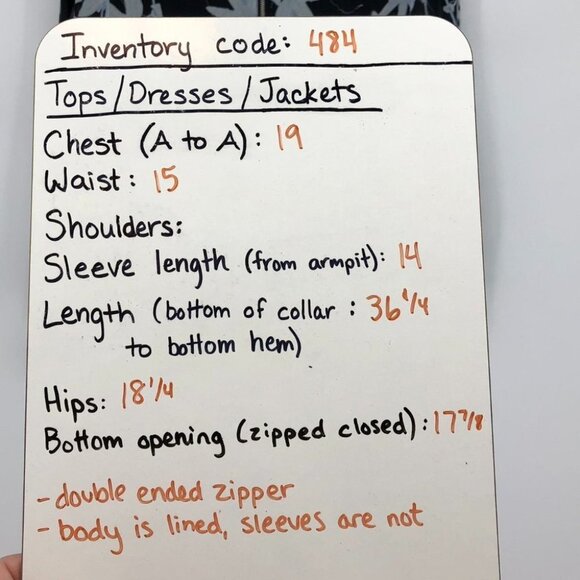 Inventory code: 484
Tops/Dresses/Jackets
Chest (A to A): 19
Waist: 15
Shoulders:
Sleeve length (from armpit): 14
Length (bottom of collar : 36 1/4
to bottom hem)
Hips: 18 1/4
Bottom opening (zipped closed): 17 7/8
- double ended zipper
- body is lined, sleeves are not